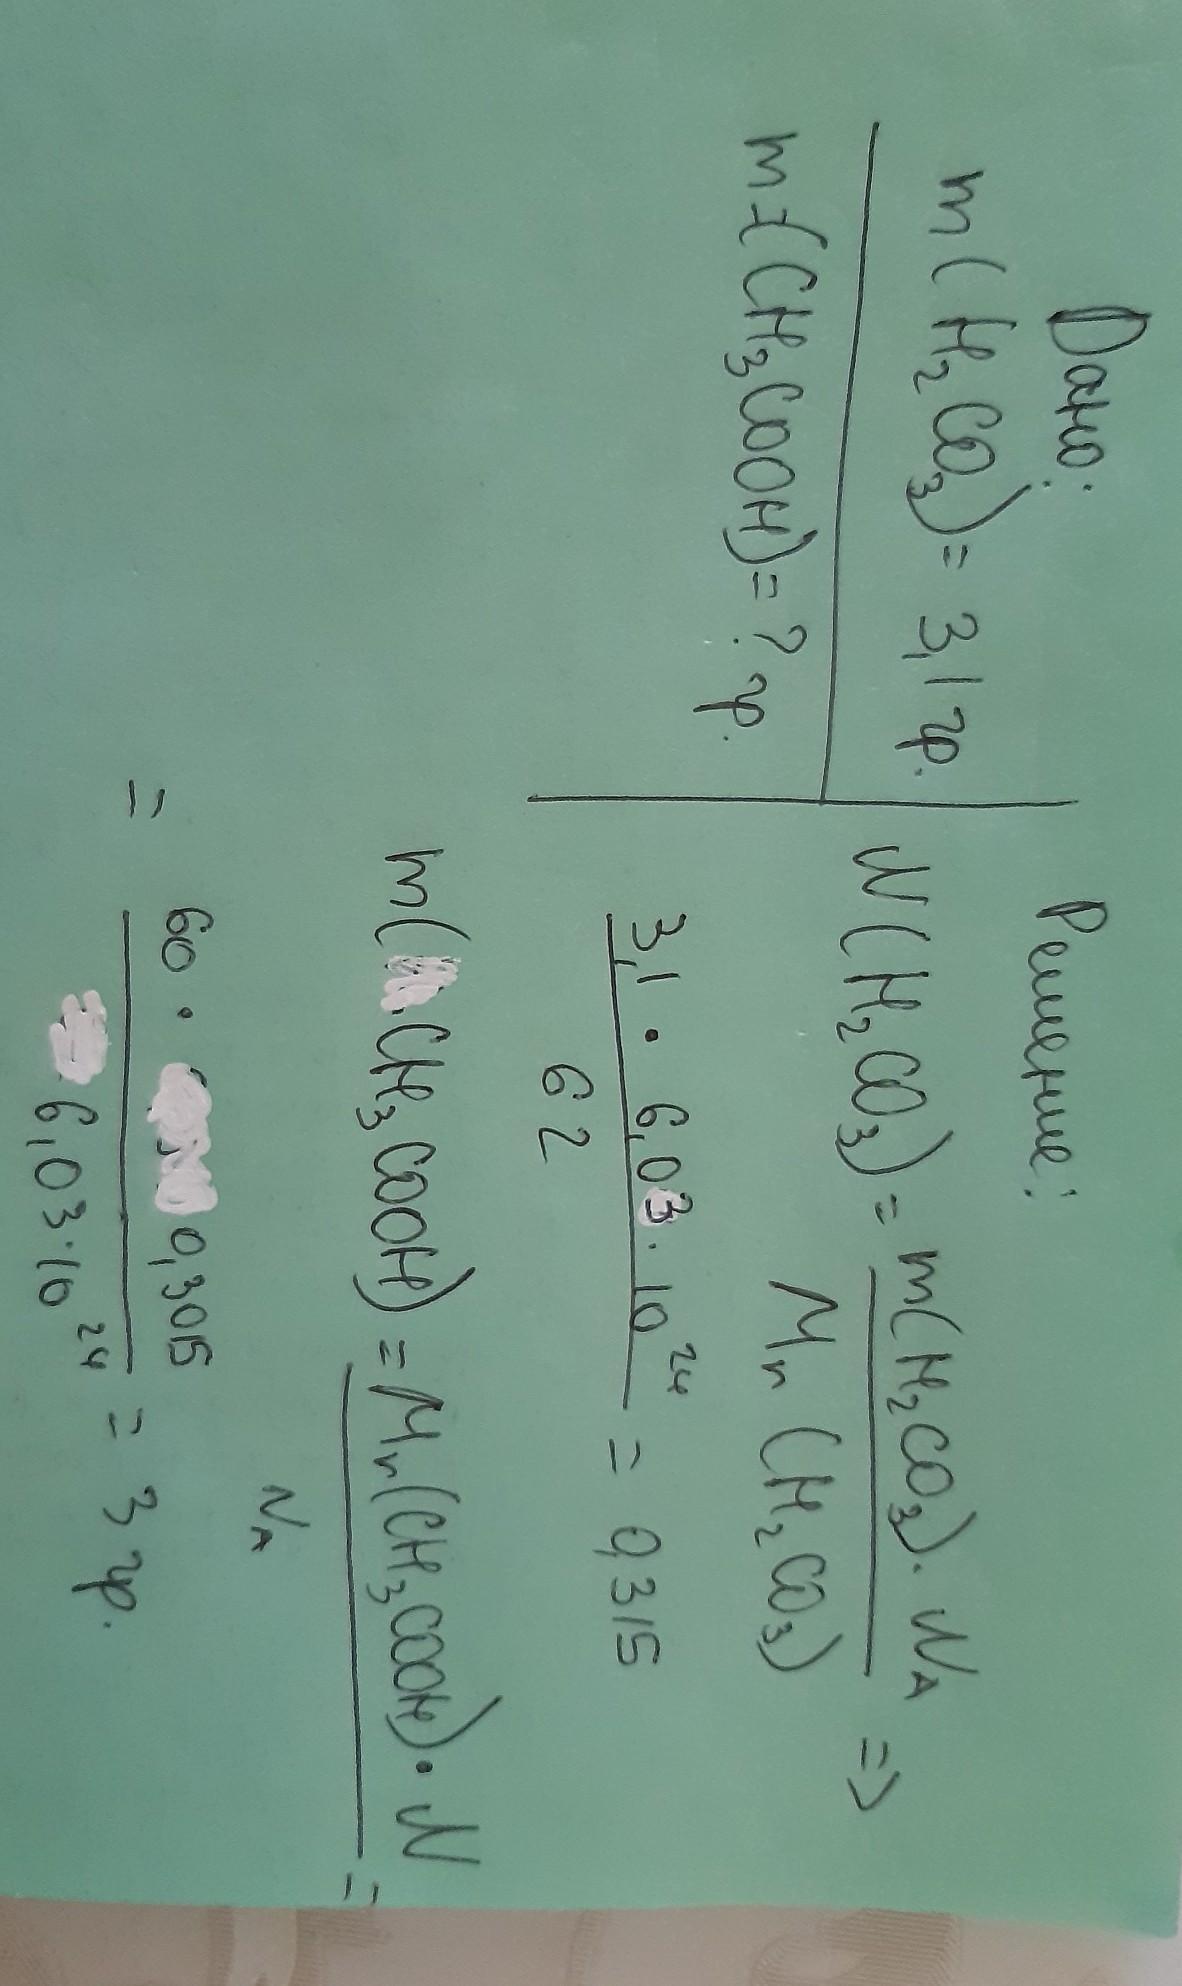 Дано:
m(H₂CO₃) = 3,1 гр.
m (CH₃COOH) = ? гр.
Решение:
N(H₂CO₃) = m(H₂CO₃) · N_A =>
Mr (H₂CO₃)
3,1 · 6,03 · 10²⁴ = 0,315
62
m(CH₃COOH) = Mr(CH₃COOH) · N =
N_A
= 60 · 0,3015 = 3 гр.
6,03·10²⁴